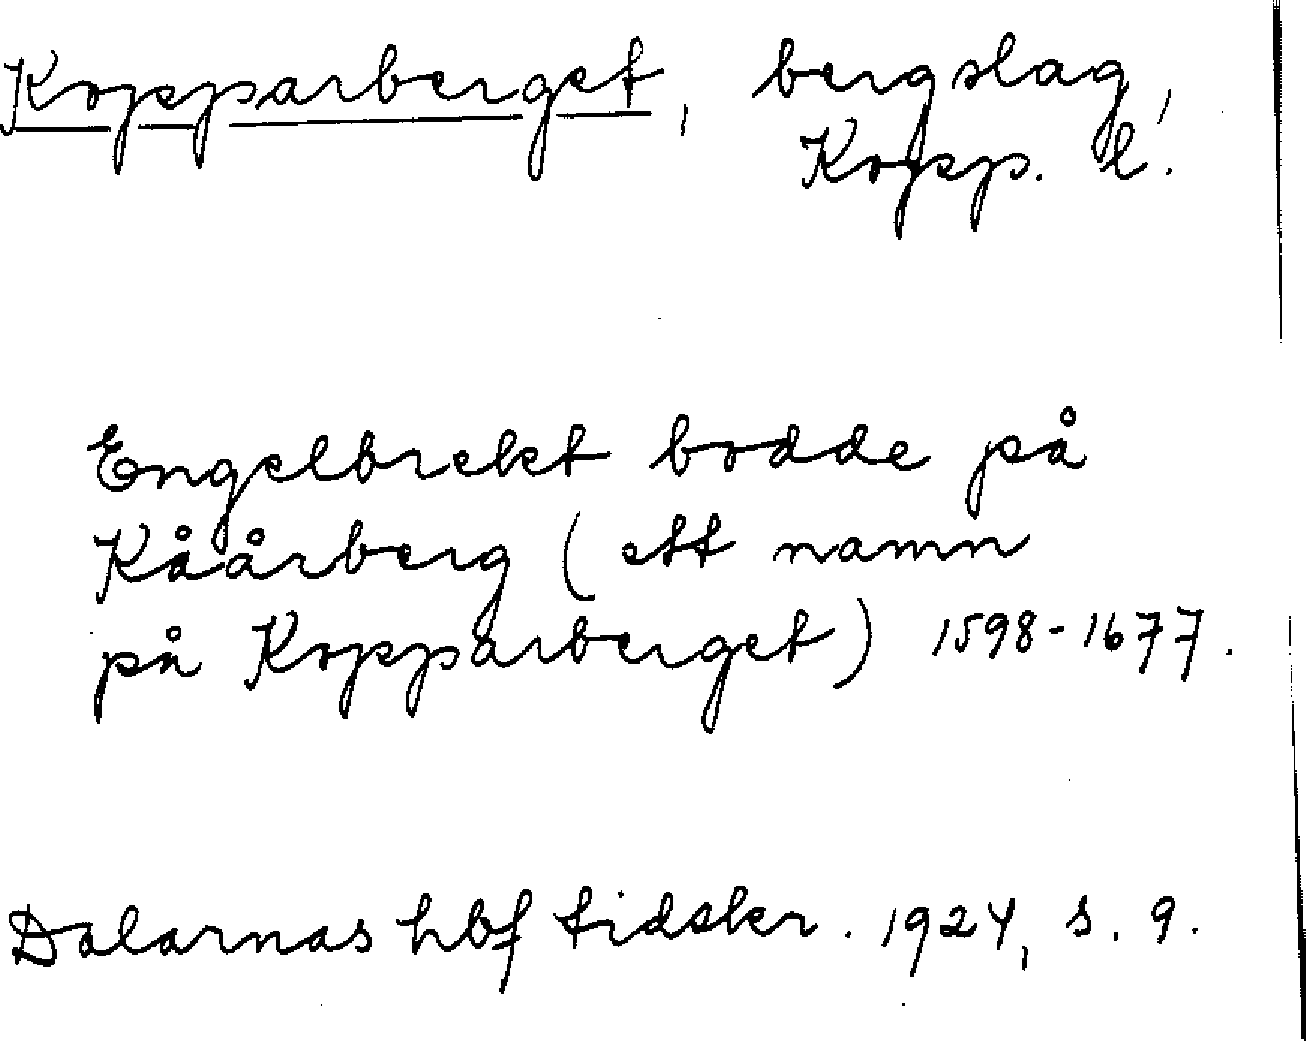 Kopparberget, bergslag,
Kopp. l.
Engelbrekt bodde på
Kåårberg (ett namn
på Kopparberget) 1598-1677.
Dalarnas hbf tidskr. 1924, s. 9.